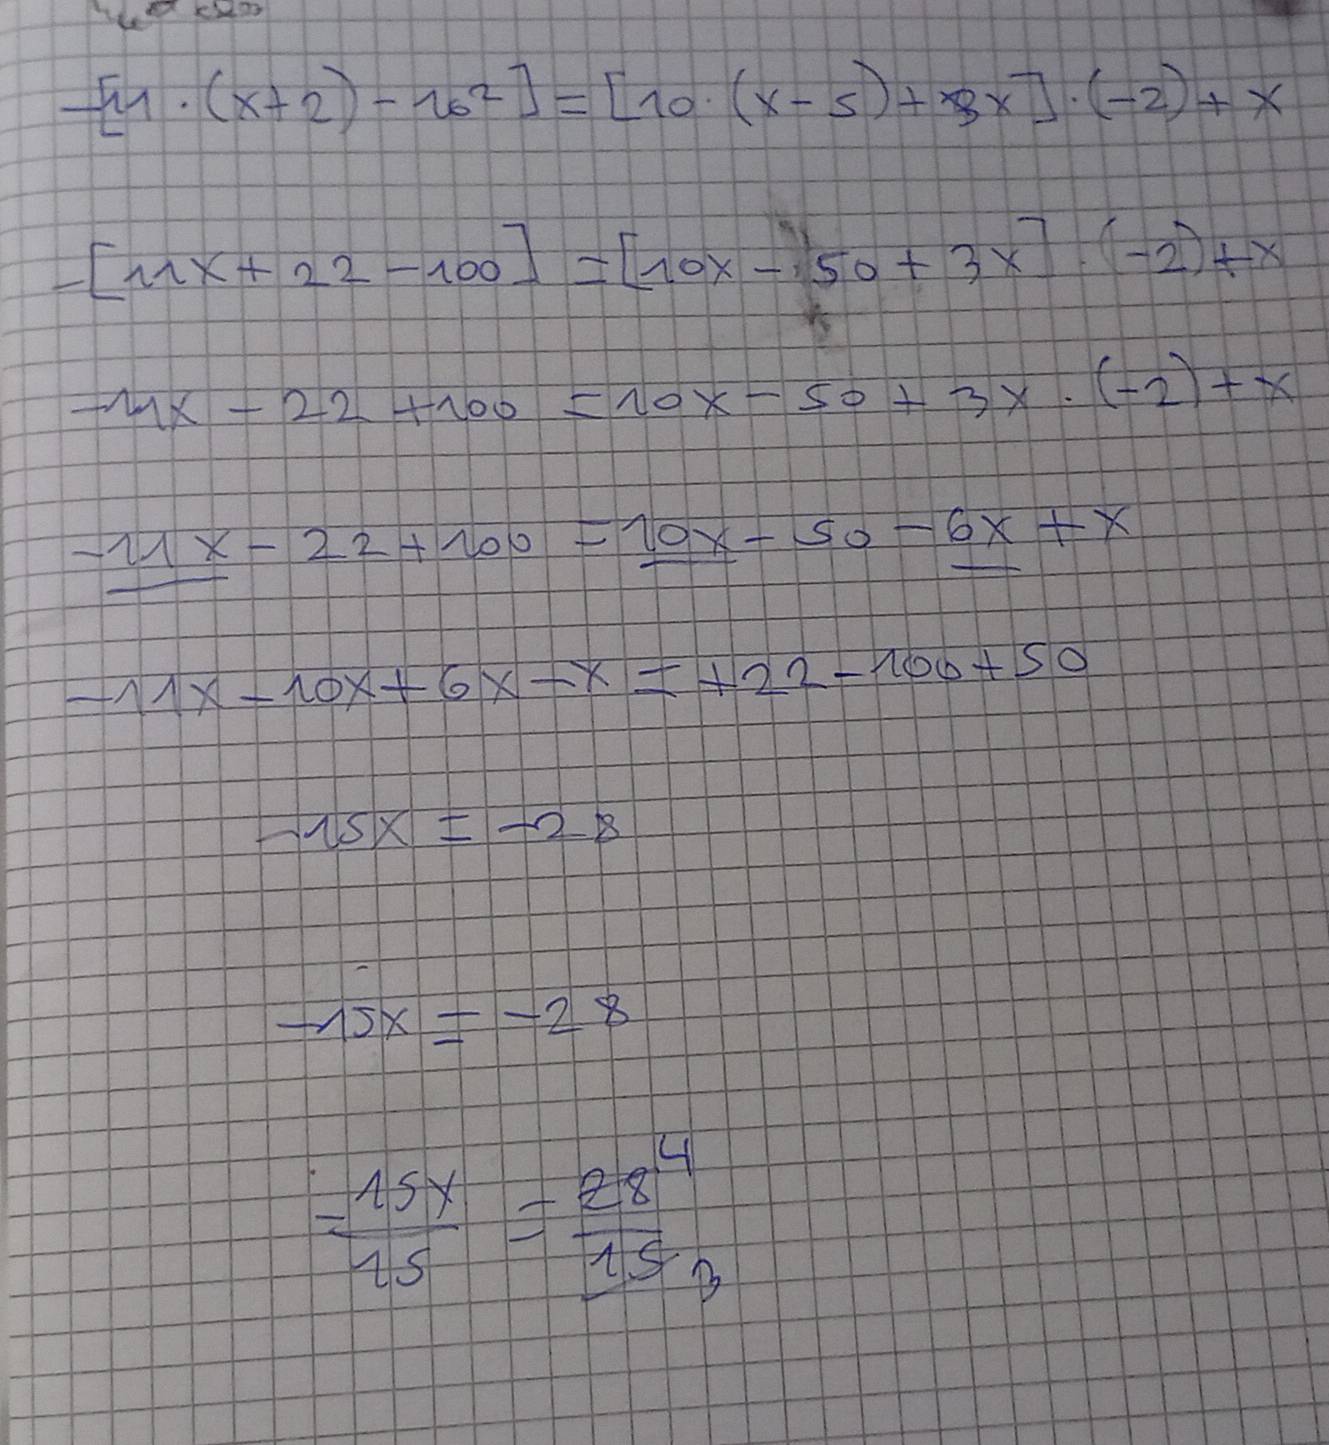 -[11·(x+2)-10²]=[10·(x-5)+3x]·(-2)+x
-[11x+22-100]=[10x-50+3x]·(-2)+x
-11x-22+100=10x-50+3x·(-2)+x
-11x-22+100=10x-50-6x+x
-11x-10x+6x-x=+22-100+50
-15x=-28
-15x=-28
-15x/15=28/15 4 3